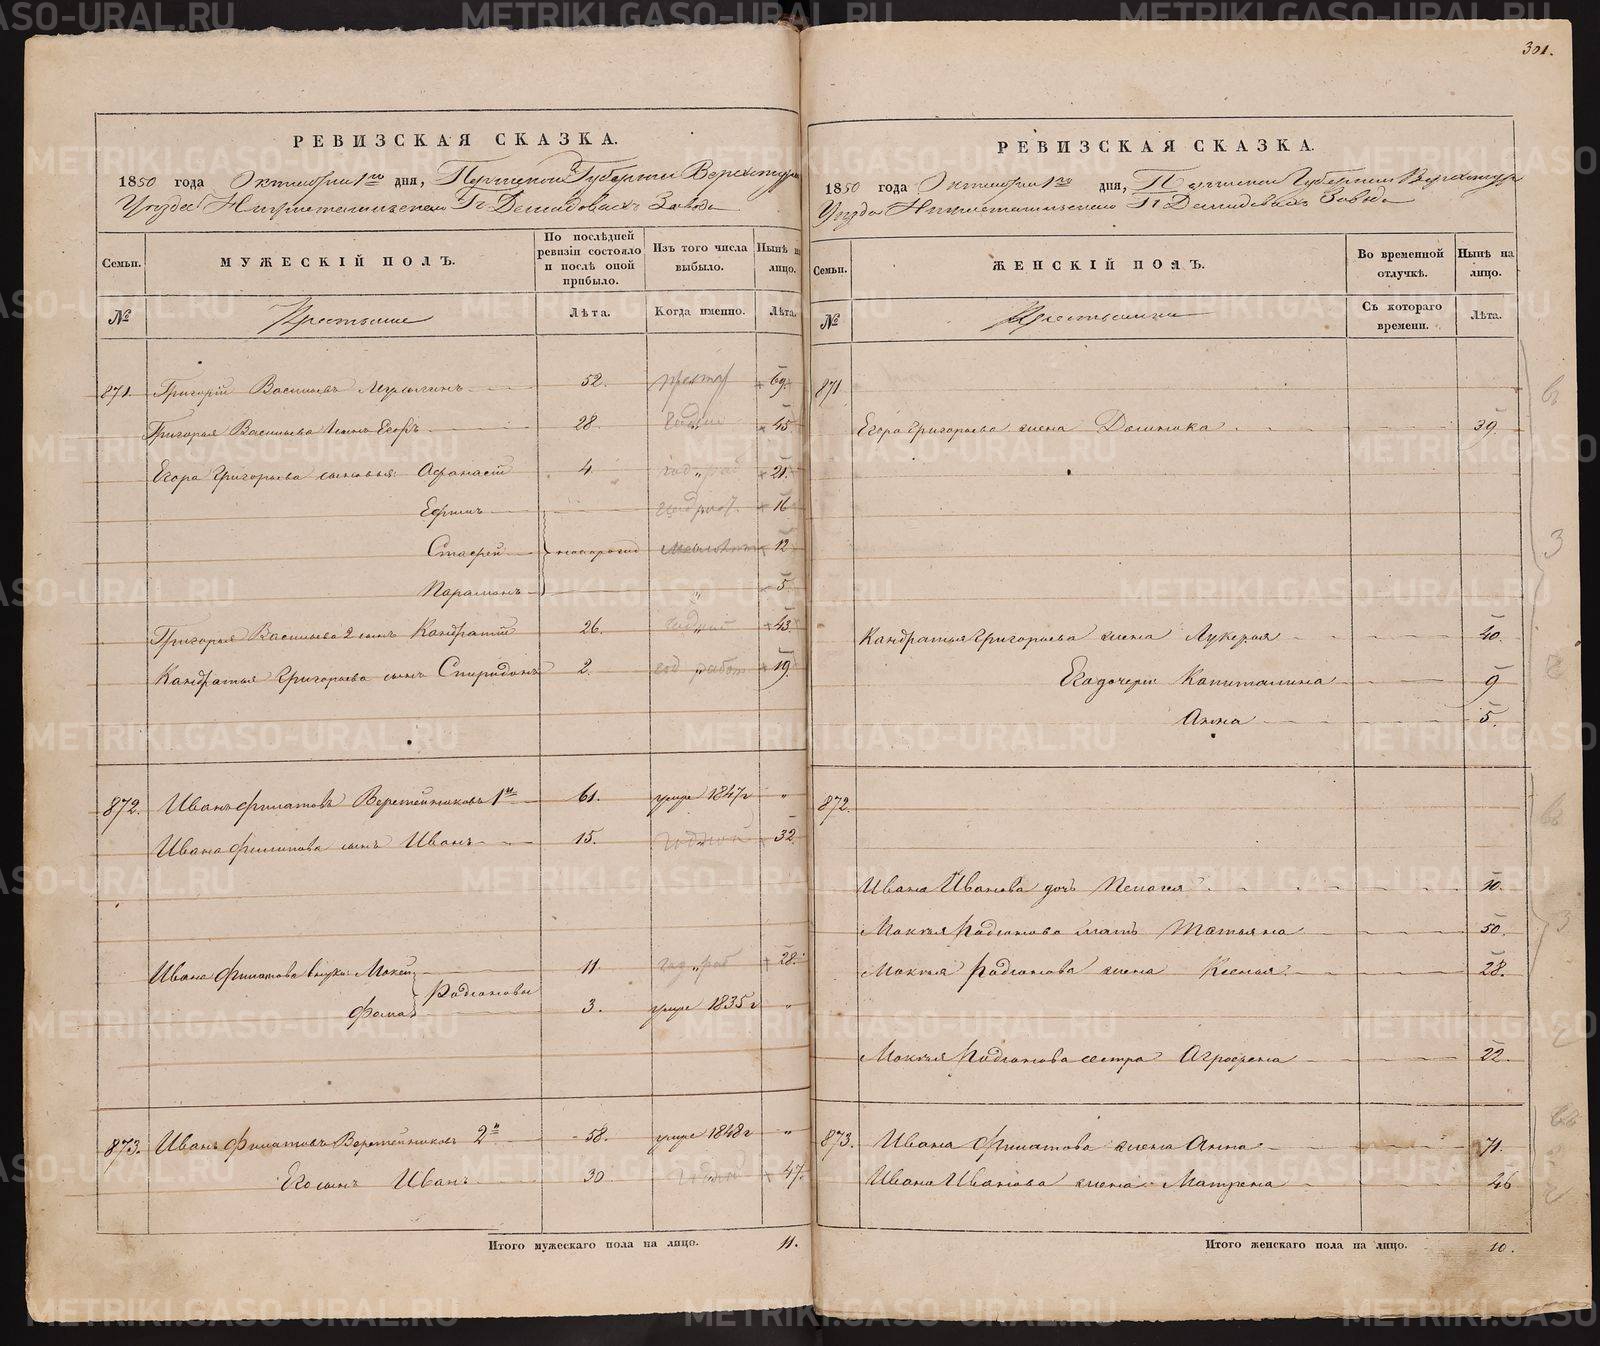 301.
РЕВИЗСКАЯ СКАЗКА.
1850 года Октября 1го дня, Пермской Губернии Верхотур
Уезда Нижнетагильского Гг Демидовых Завода
Семьи.
МУЖЕСКІЙ ПОЛЪ.
По послѣдней ревизіи состояло и послѣ оной прибыло.
Изъ того числа выбыло.
Нынѣ на лицо.
№
Крестьяне
Лѣта.
Когда именно.
Лѣта.
871. Григорій Васильевъ 52. 69.
Григорья Васильева 1 сынъ Егоръ 28. 45
Егора Григорьева сыновья: Афанасій 4. год раб 21.
Ефимъ 16
Стафей новорожд 12
Парамонъ " 5
Григорья Васильева 2 сынъ Кандратій 26. 43.
Кандратья Григорьева сынъ Спиридонъ 2. год работ 19.
872. Иванъ Филатовъ Веретенниковъ 1й 61. умре 1847г "
Ивана Филипова сынъ Иванъ 15. годной 32.
Ивана Филатова внуки: Мокей 11. год раб 28.
Родіоновы
Фома 3. умре 1835г "
873. Иванъ Филатовъ Веретенниковъ 2й 58. умре 1848г "
Его сынъ Иванъ 30. 47.
Итого мужескаго пола на лицо. 11.
РЕВИЗСКАЯ СКАЗКА.
1850 года Октября 1го дня, Пермской Губернии Верхотур
Уезда Нижнетагильского Гг Демидовых Завода
Семьи.
ЖЕНСКІЙ ПОЛЪ.
Во временной отлучкѣ.
Нынѣ на лицо.
№
Крестьянки
Съ котораго времени.
Лѣта.
871.
Егора Григорьева жена Домника 39.
Кандратья Григорьева жена Лукерья 40.
Его дочери: Капиталина 9
Анна 5.
872.
Ивана Иванова дочь Пелагея 10.
Мокея Родионова мать Татьяна 50.
Мокея Родионова жена Ксенья 28.
Мокея Родионова сестра Агрофена 22.
873. Ивана Филатова жена Анна 71.
Ивана Иванова жена Матрена 46
Итого женскаго пола на лицо. 10.
METRIKI.GASO-URAL.RU